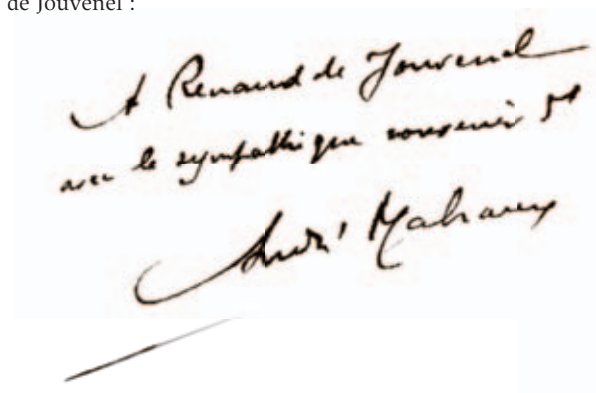 de Jouvenel :
A Renaud de Jouvenel
avec le sympathique souvenir
André Malraux